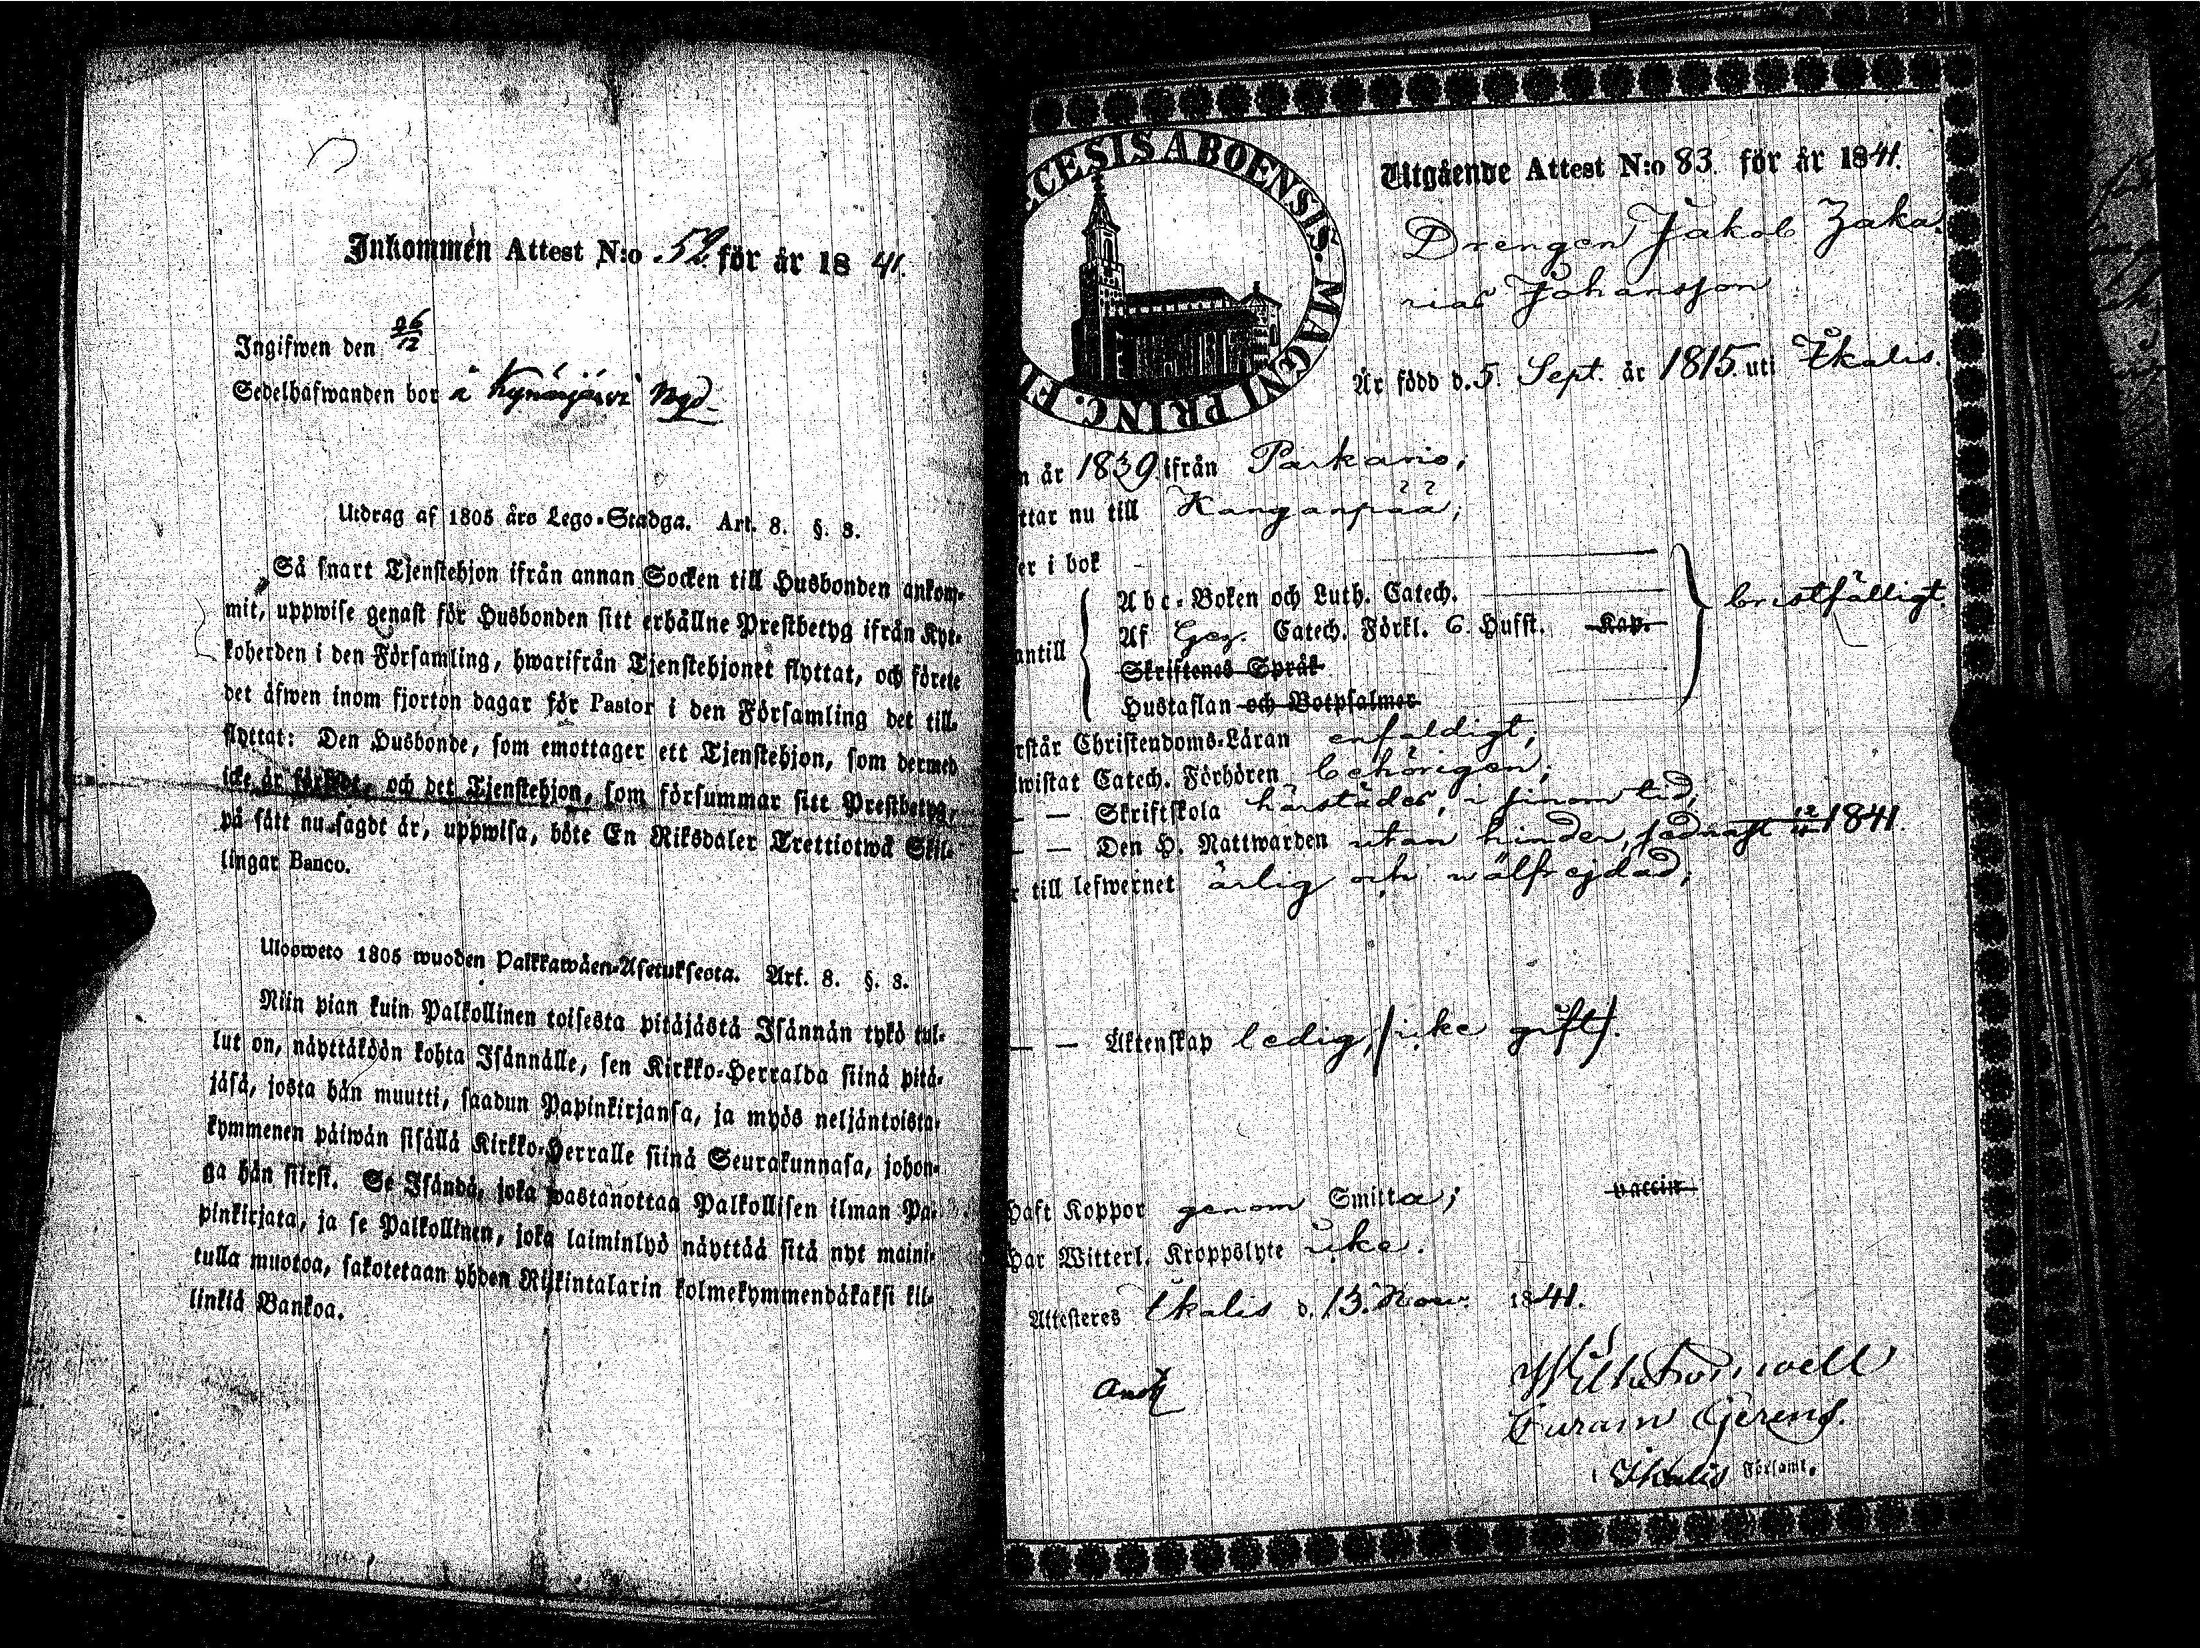 Inkommen Attest N:o 52. för år 1841.
Ingifwen den 26/12
Sedelhafwanden bor i Kynäsjärvi Nyd.
Utdrag af 1805 års Lego-Stadga. Art. 8. §. 3.
Så snart Tjenstehjon ifrån annan Socken till Husbonden ankom-
mit, uppwise genast för Husbonden sitt erhållne Prestbetyg ifrån Kyr-
koherden i den Församling, hwarifrån Tjenstehjonet flyttat, och förete
det äfwen inom fjorton dagar för Pastor i den Församling det till-
flyttat: Den Husbonde, som emottager ett Tjenstehjon, som dermed
icke är försedt, och det Tjenstehjon, som försummar sitt Prestbetyg,
på sätt nu sagdt är, uppwisa, böte En Riksdaler Trettiotwå Skil-
lingar Banco.
Ulosweto 1805 wuoden Palkkawäen-Asetuksesta. Art. 8. §. 3.
Niin pian kuin Palkollinen toisesta pitäjästä Isännän tykö tul-
lut on, näyttäköön kohta Isännälle, sen Kirkko-Herralda siinä pitä-
jäsä, josta hän muutti, saadun Papinkirjansa, ja myös neljäntoista-
kymmenen päiwän sisällä Kirkko-Herralle siinä Seurakunnasa, johon-
ga hän siirsi. Se Isändä, joka wastanottaa Palkollisen ilman Pa-
pinkirjata, ja se Palkollinen, joka laiminlyö näyttää sitä nyt maini-
tulla muotoa, sakotetaan yhden Riikintalarin kolmekymmendäkaksi kil-
linkiä Bankoa.
ECESIS ABOENSIS. MAGNI PRINC. FI
Utgående Attest N:o 83. för år 1841.
Drengen Jakob Zaka-
rias Johansson
Är född d. 5. Sept. år 1815. uti Ikalis.
n år 1839. ifrån Parkano;
ttar nu till Kanganpää;
er i bok
Abc-Boken och Luth. Catech.
antill Af Gez. Catech. Förkl. 6. Hufst. Kap. bristfälligt.
Skriftenes Språk
Hustaflan och Botpsalmer
rstår Christendoms-Läran enfaldigt;
wistat Catech. Förhören behörigen;
— — Skriftskola härstädes, i sinom tid,
— — Den H. Nattwarden utan hinder, sednast 12/11 1841.
r till lefwernet ärlig och wälfrejdad;
— — Äktenskap ledig, /: icke gift/.
haft Koppor genom Smitta; vaccin
Har Witterl. Kroppslyte icke.
Attesteres Ikalis d. 13. Nov. 1841.
Curam Gerens.
Ikalis Församl.